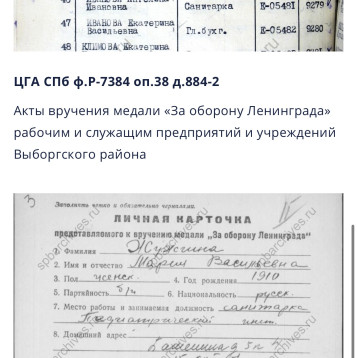 Ивановна Санитарка Е-05481 9279
47 ИВАНОВА Екатерина
Васильевна Гл.бухг. Е-05482 9280
48 КЛИМОВА Екатерина
ЦГА СПб ф.Р-7384 оп.38 д.884-2
Акты вручения медали «За оборону Ленинграда»
рабочим и служащим предприятий и учреждений
Выборгского района
3
Заполнять четко и обязательно чернилами.
ЛИЧНАЯ КАРТОЧКА
представляемого к вручению медали „За оборону Ленинграда"
1. Фамилия
2. Имя и отчество Мария Васильевна
3. Пол женск. 4. Год рождения 1910
5. Партийность б/п 6. Национальность русск.
7. Место работы и занимаемая должность санитарка
Педиатрический инст.
8. Домашний адрес
spbarchives.ru